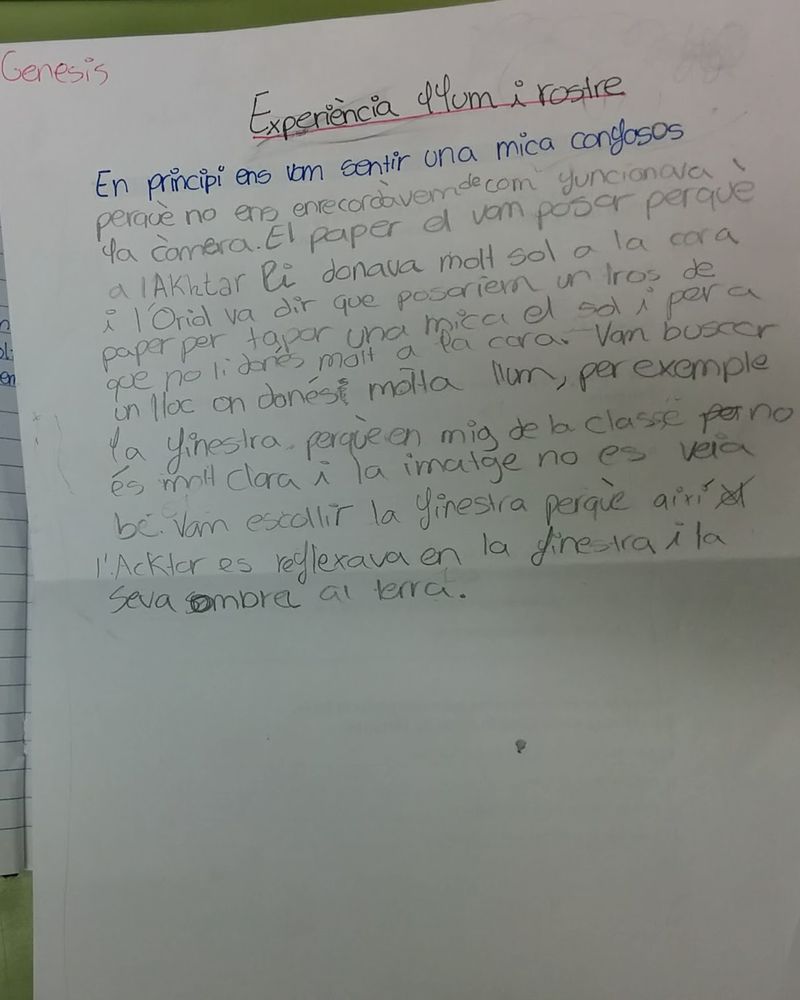 Genesis
Experiència llum i rostre
En principi ens vam sentir una mica confosos
perquè no ens enrecordàvem de com funcionava
la càmera. El paper el vam posar perquè
a l'AKhtar li donava molt sol a la cara
i l'Oriol va dir que posariem un tros de
paper per tapar una mica el sol i per a
que no li donés molt a la cara. Vam buscar
un lloc on donés molta llum, per exemple
la finestra. perquè en mig de la classe no
és molt clara i la imatge no es veia
bé. Vam escollir la finestra perquè aixi
l'Acktar es reflexava en la finestra i la
seva ombra al terra.